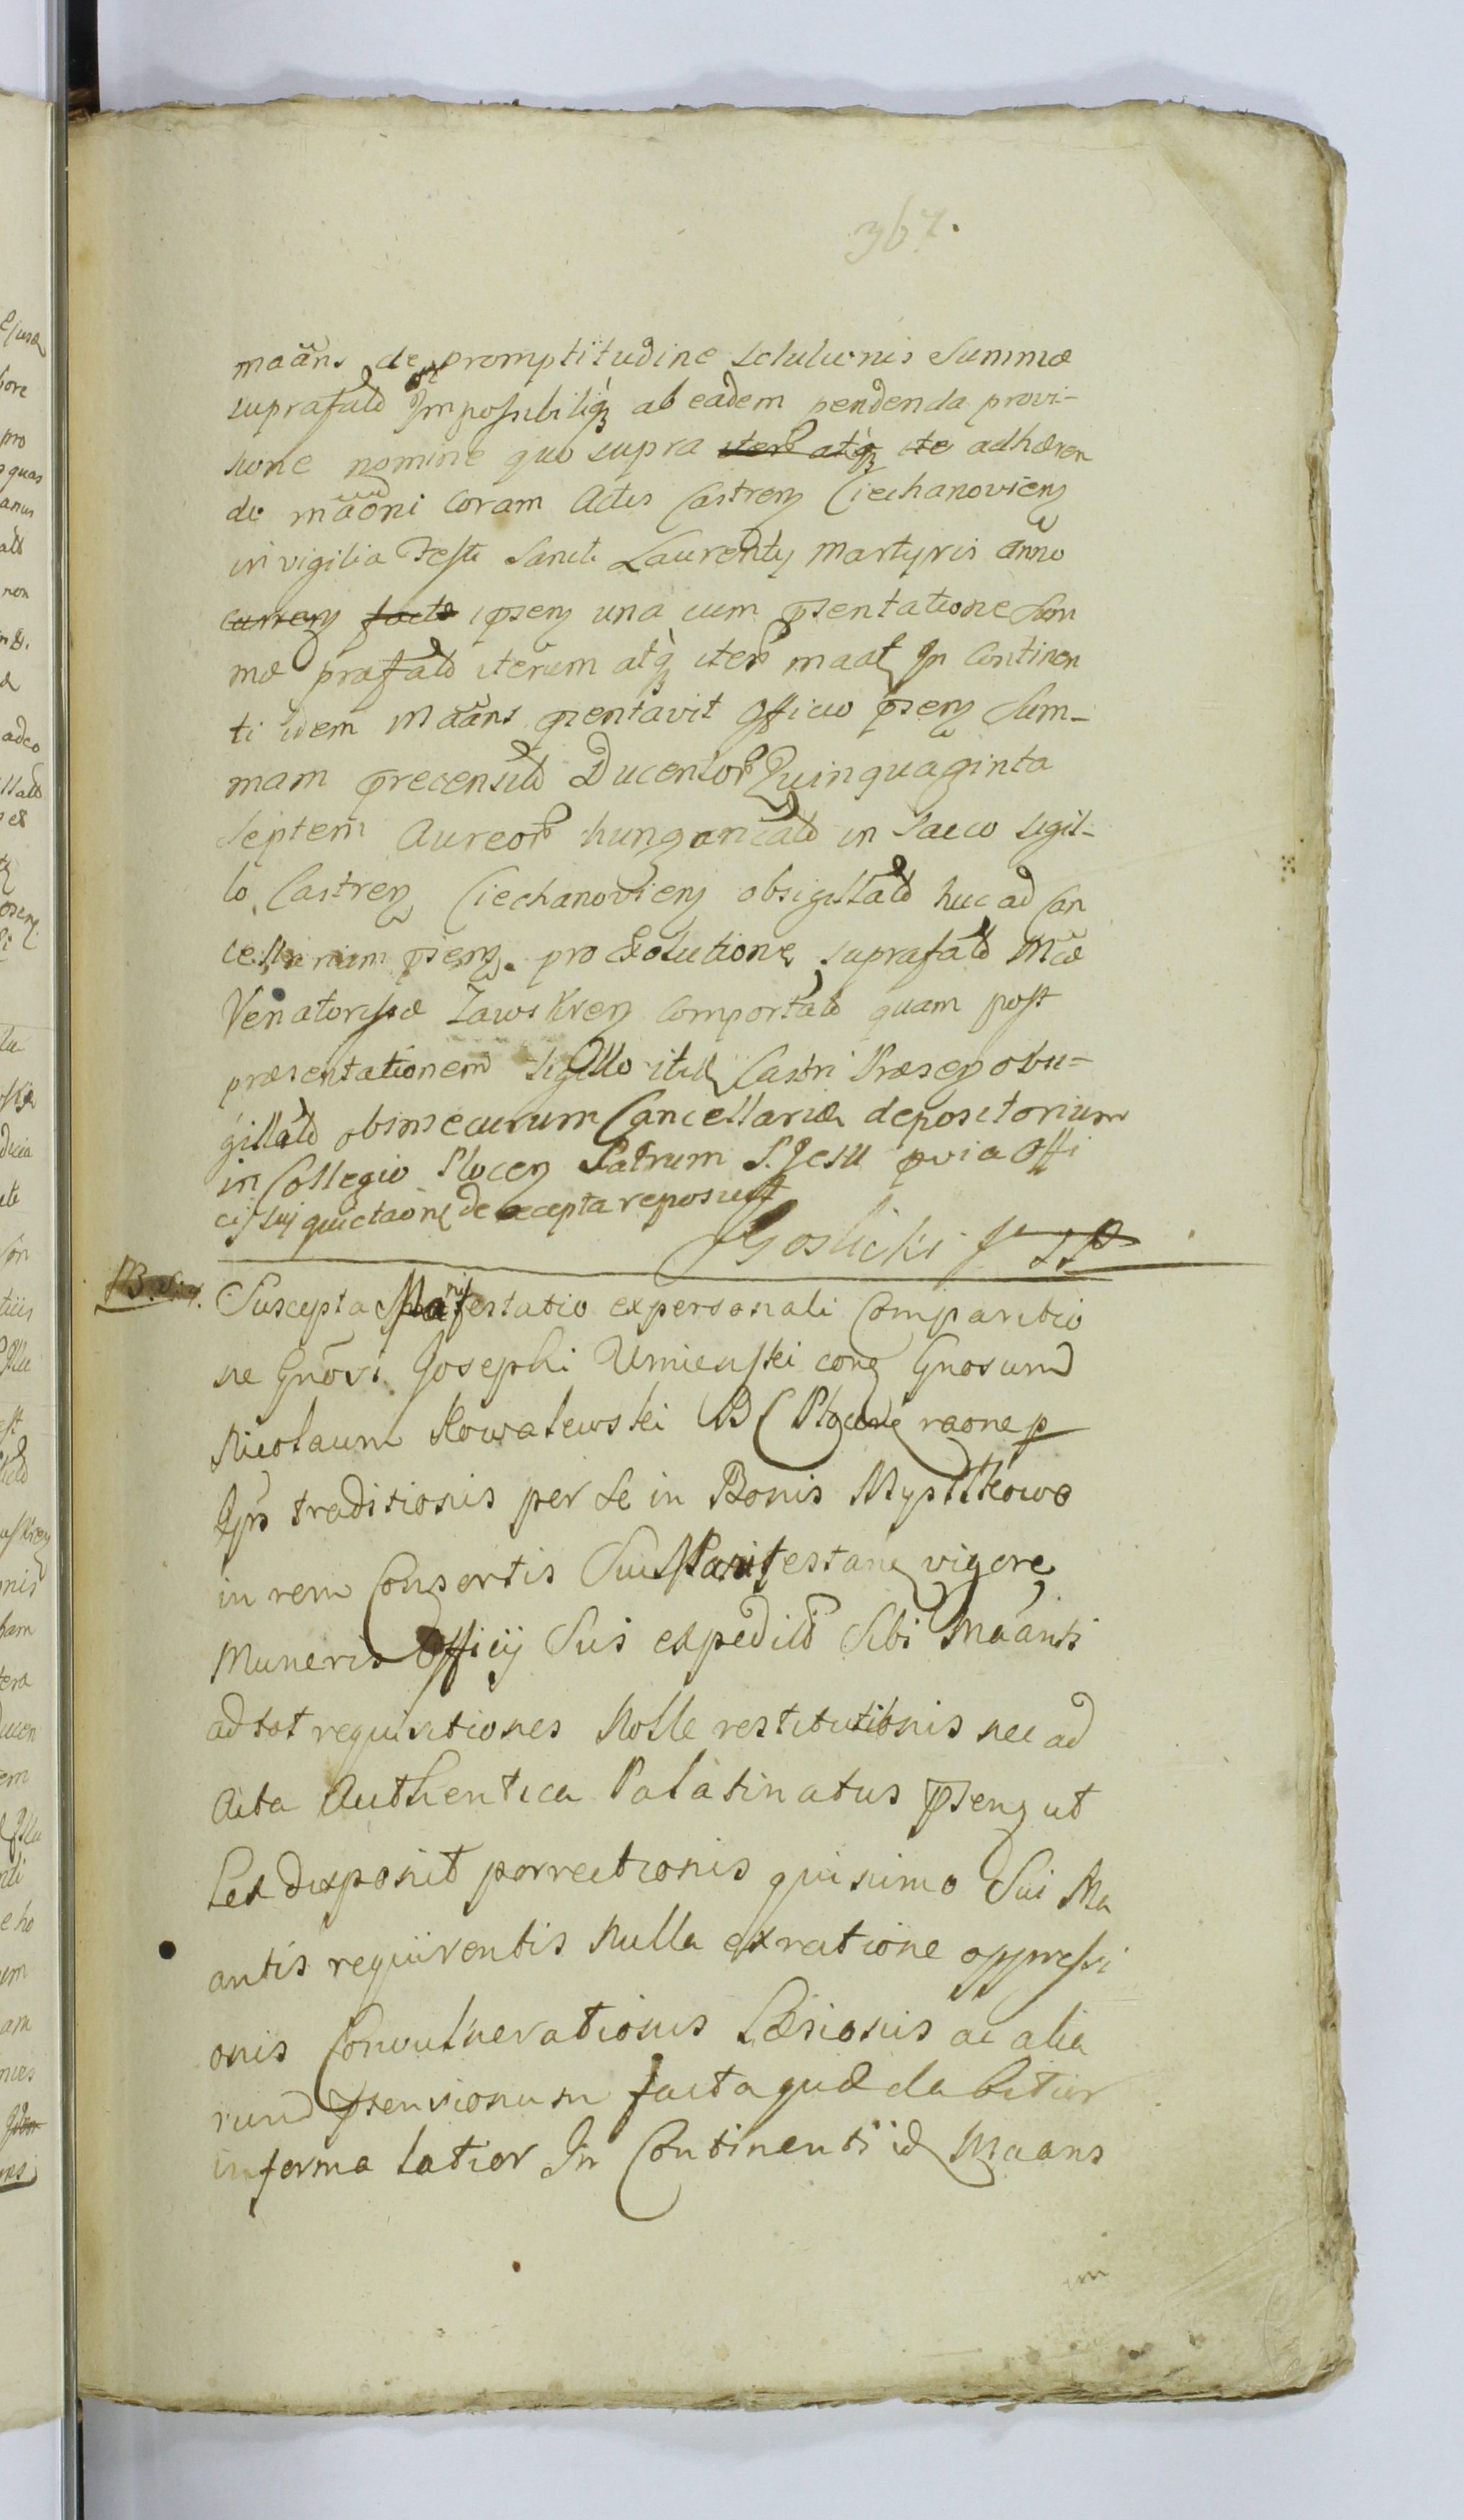 367.
maãns de promptitudine solutionis Summæ
suprafatæ Impossibiliq; ab eadem pendenda provi-
sione nomine quo supra iteru atq; ite adhæren
do mãoni coram Actis Castren Ciechanovien
in vigilia Festi Sancti Laurentij Martyris anno
curren facto ipsen una cum psentatione Sum
mæ præfatæ iterum atq; iter maat In Continen
ti idem Maãns psentavit Officio psen Sum-
mam precensit Ducentor Quinquaginta
Septem Aureor hungaricalo in Sacco sigil-
lo Castren Ciechanovien obsigillato huc ad Can
cellarium psen. pro Exolutione suprafatæ Mcæ
Venatorissæ Zawskren comportat quam post
præsentationem sigillo itid Castri Præsen obsi-
gillato obmsecurum Cancellariæ depositorium
in Collegio Plocen Patrum S. Jesu pvia Offi
cij sui quietaõne de recepta reposuit
JGoslicki
Suscepta Manifestatio expersonali Comparitio
ne Gnõsi Josephi Umienski con Gnosum
Nicolaum Kowalewski B C Plocen raone p
Ips traditionis per se in Bonis Mystkowo
in rem Consortis Sui Manifestan vigore
Muneris Officij Sui expedito Sibi Maanti
ad tot requisitiones Nolle restitutionis nec ad
Acta Authentica Palatinatus psen ut
Lex disponit porrectionis quinimo Sui Ma
antis requirentis Nulla exratione oppressi
onis Convulnerationis Læsionis ac alia
rum psensionum facta quæ dabitur
in forma latior In Continenti id Maans
im